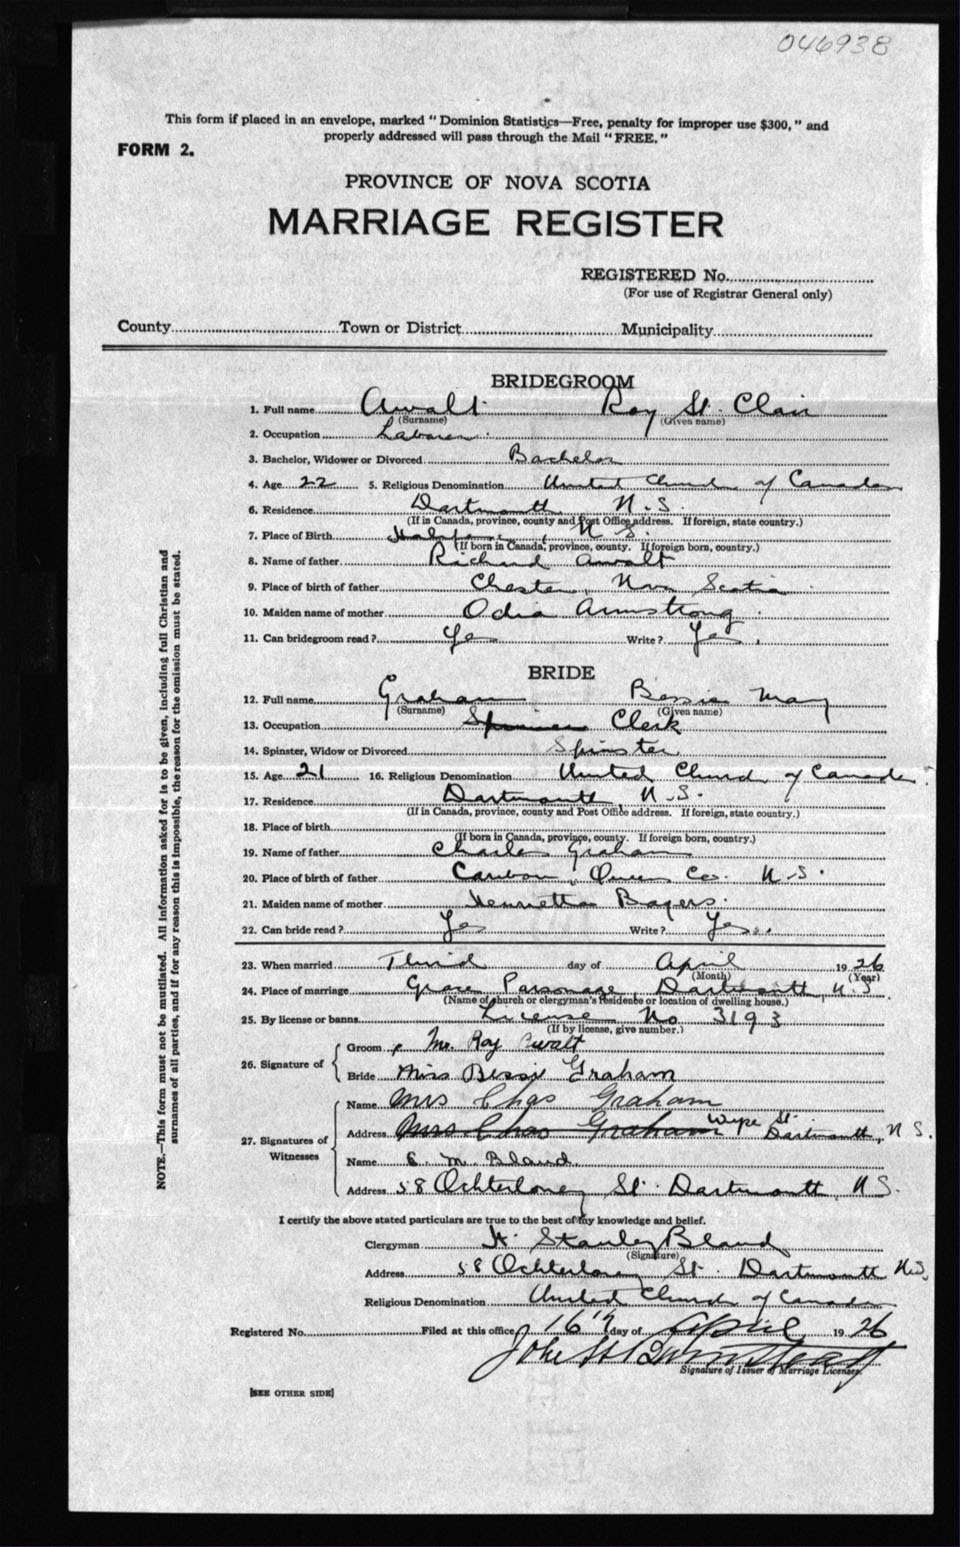 046938
This form if placed in an envelope, marked " Dominion Statistics—Free, penalty for improper use $300, " and
properly addressed will pass through the Mail " FREE. "
FORM 2.
PROVINCE OF NOVA SCOTIA
MARRIAGE REGISTER
REGISTERED No.
(For use of Registrar General only)
County Town or District Municipality
BRIDEGROOM
1. Full name Awalt Roy St. Clair
(Surname) (Given name)
2. Occupation Laborer
3. Bachelor, Widower or Divorced Bachelor
4. Age 22 5. Religious Denomination United Church of Canada
6. Residence Dartmouth N.S.
(If in Canada, province, county and Post Office address. If foreign, state country.)
7. Place of Birth N.S.
(If born in Canada, province, county. If foreign born, country.)
8. Name of father Richard Awalt
9. Place of birth of father Chester, Nova Scotia
10. Maiden name of mother Armstrong
11. Can bridegroom read? Yes Write? Yes.
BRIDE
12. Full name Graham Bessie May
(Surname) (Given name)
13. Occupation Clerk
14. Spinster, Widow or Divorced Spinster
15. Age 21 16. Religious Denomination United Church of Canada
17. Residence Dartmouth N.S.
(If in Canada, province, county and Post Office address. If foreign, state country.)
18. Place of birth
(If born in Canada, province, county. If foreign born, country.)
19. Name of father Charles Graham
20. Place of birth of father Queens Co. N.S.
21. Maiden name of mother Henrietta
22. Can bride read? Yes Write? Yes.
23. When married Third day of April 1926
(Month) (Year)
24. Place of marriage Grace Parsonage, Dartmouth, N.S.
(Name of church or clergyman's residence or location of dwelling house.)
25. By license or banns License No 3193
(If by license, give number.)
26. Signature of Groom Mr. Roy Awalt
Bride Miss Bessie Graham
27. Signatures of Witnesses Name Mrs Chas Graham
Address Mrs Chas Graham St. Dartmouth, N.S.
Name E. M. Bland.
Address 58 Ochterloney St. Dartmouth N.S.
I certify the above stated particulars are true to the best of my knowledge and belief.
Clergyman H. Stanley Bland
(Signature)
Address 58 Ochterloney St. Dartmouth N.S.
Religious Denomination United Church of Canada
Registered No. Filed at this office, 16th day of April 1926
Signature of Issuer of Marriage Licenses.
[SEE OTHER SIDE]
NOTE.—This form must not be mutilated. All information asked for is to be given, including full Christian and
surnames of all parties, and if for any reason this is impossible, the reason for the omission must be stated.